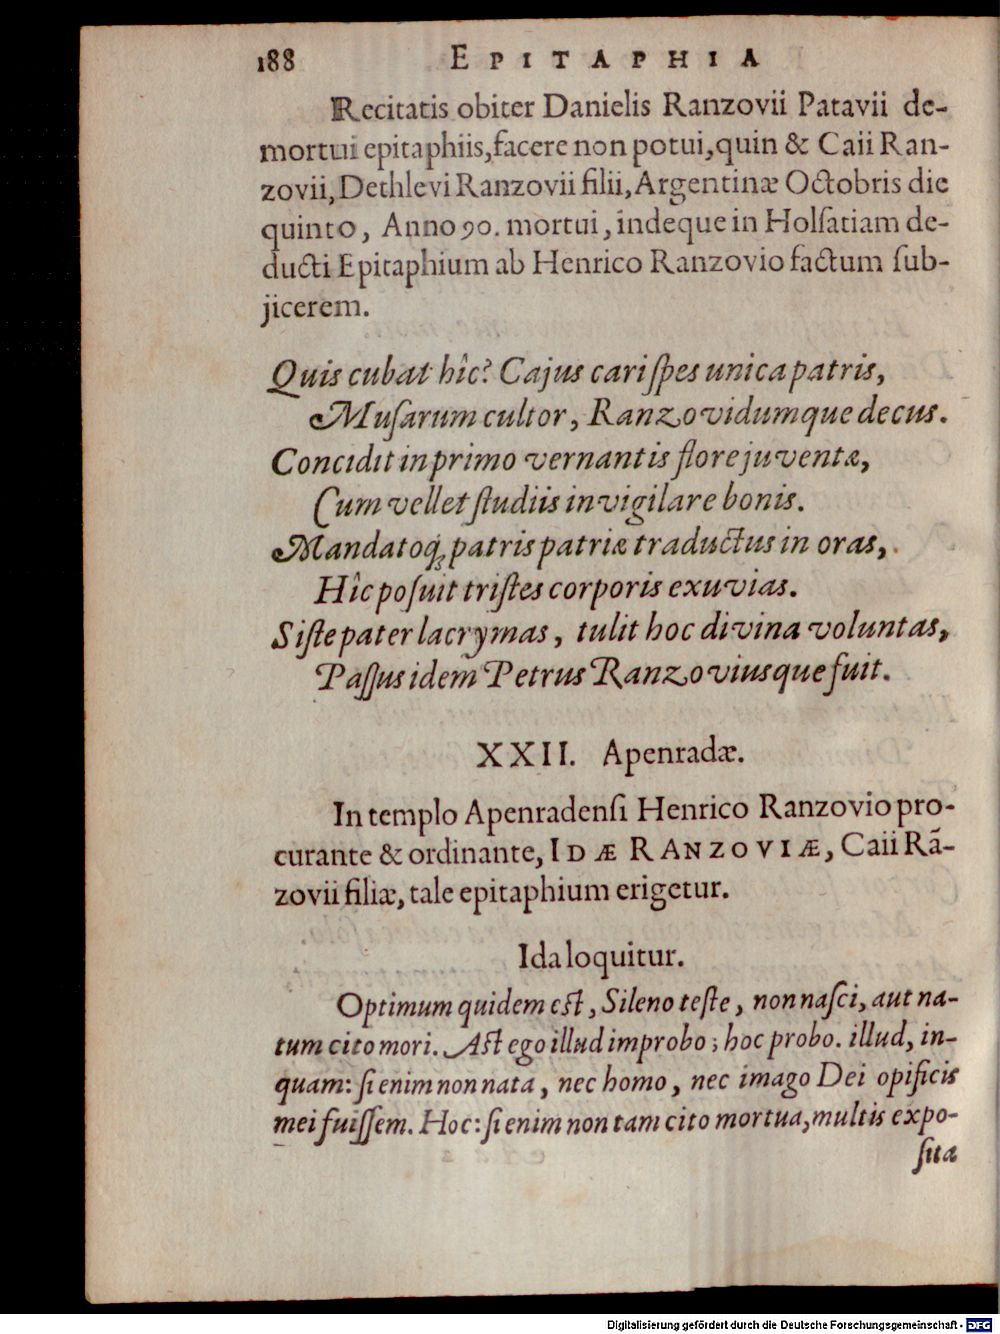 188 EPITAPHIA
Recitatis obiter Danielis Ranzovii Patavii de-
mortui epitaphiis, facere non potui, quin & Caii Ran-
zovii, Dethlevi Ranzovii filii, Argentinæ Octobris die
quinto, Anno 90. mortui, indeque in Holſatiam de-
ducti Epitaphium ab Henrico Ranzovio factum ſub-
jicerem.
Quis cubat hîc? Cajus cari ſpes unica patris,
Muſarum cultor, Ranzovidumque decus.
Concidit in primo vernantis flore juventæ,
Cum vellet ſtudiis invigilare bonis.
Mandatoq́; patris patriæ traductus in oras,
Hîc poſuit triſtes corporis exuvias.
Siſte pater lacrymas, tulit hoc divina voluntas,
Paſſus idem Petrus Ranzoviusque fuit.
XXII. Apenradæ.
In templo Apenradenſi Henrico Ranzovio pro-
curante & ordinante, IDÆ RANZOVIÆ, Caii Rã-
zovii filiæ, tale epitaphium erigetur.
Ida loquitur.
Optimum quidem eſt, Sileno teſte, non naſci, aut na-
tum cito mori. Aſt ego illud improbo; hoc probo. illud, in-
quam: ſi enim non nata, nec homo, nec imago Dei opificis
mei fuiſſem. Hoc: ſi enim non tam cito mortua, multis expo-
ſita
Digitalisierung gefördert durch die Deutsche Forschungsgemeinschaft - DFG